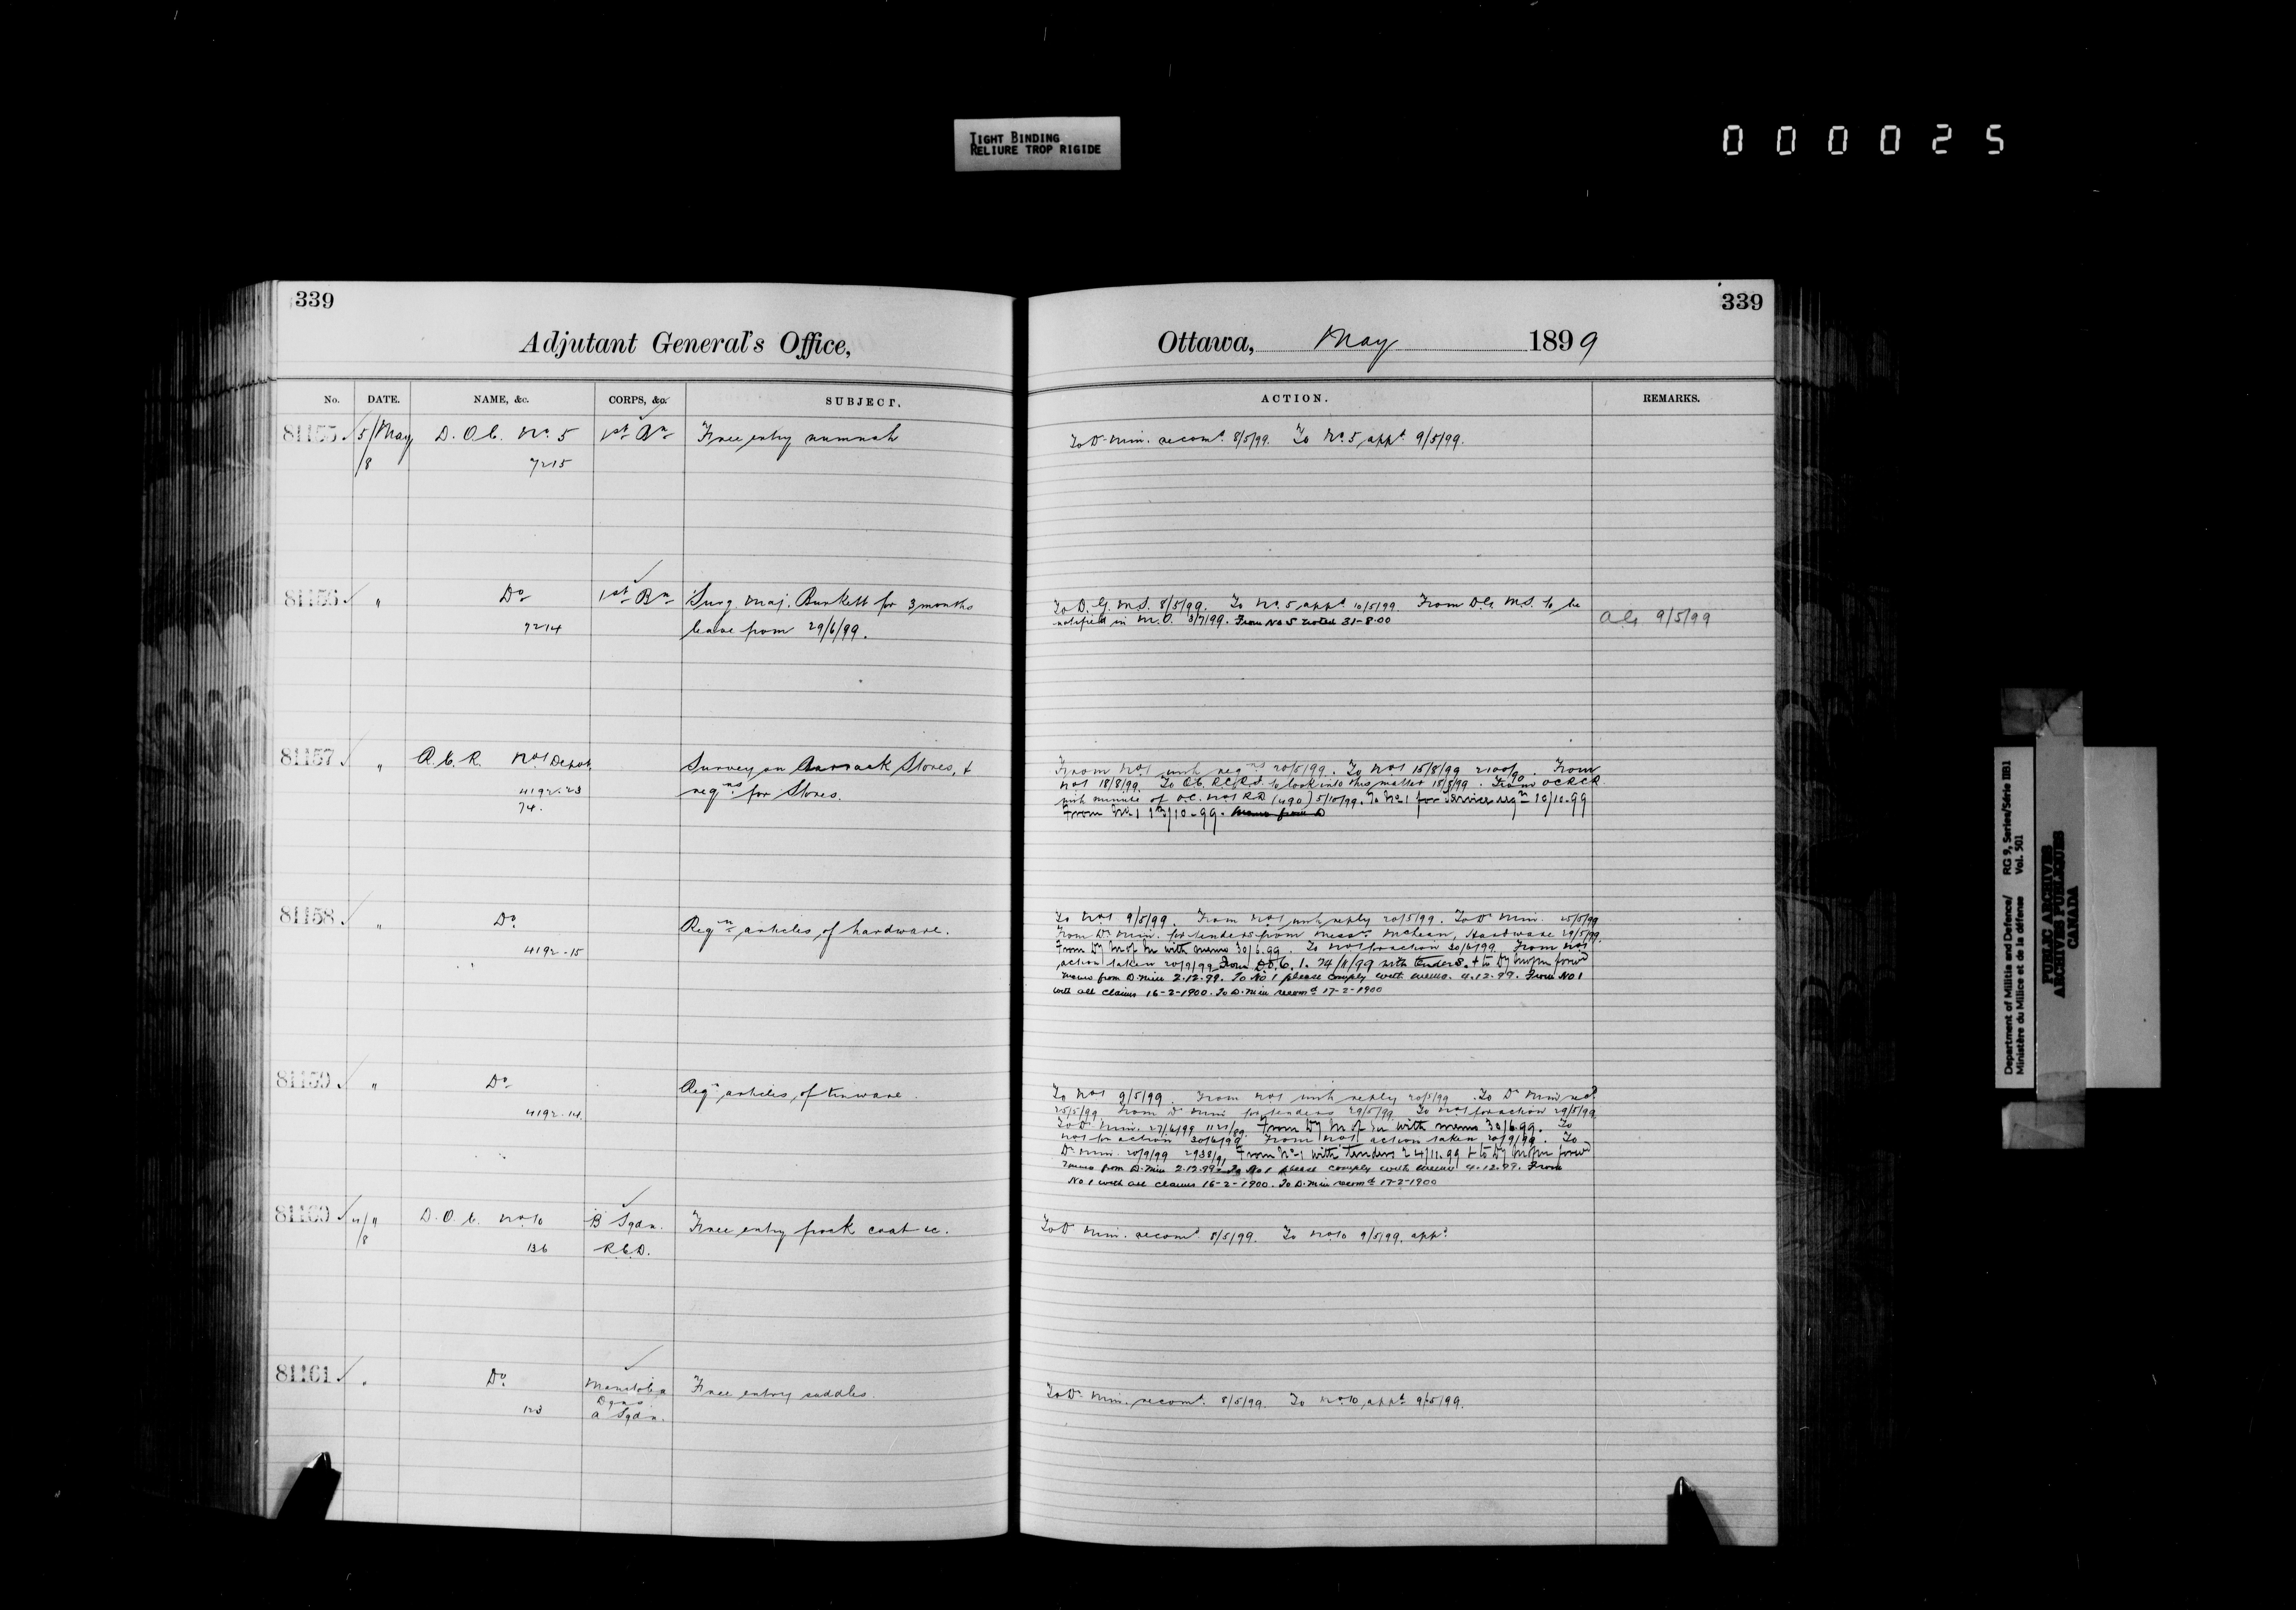 TIGHT BINDING
RELIURE TROP RIGIDE
000025
339
Adjutant General's Office,
No. DATE. NAME, &c. CORPS, &c. SUBJECT.
81155 5/May D. O. C. No. 5 1st Bn Free entry numnah
/8 7215
81156 " Do 1st Bn Surg. Maj. Burkett for 3 months
7214 leave from 29/6/99.
81157 " R.C.R. No 1 Depot. Survey on Barrack Stores, &
4192-23 reqns for Stores.
74.
81158 " Do Reqn articles of hardware.
4192-15
81159 " Do Reqn articles of tinware.
4192-14.
81160 " D. O. C. No 10 B Sqdn. Free entry frock coat &c.
/8 136 R.C.D.
81161 " Do Manitoba Free entry saddles.
123 Dgns
A Sqdn.
339
Ottawa, May 1899
ACTION. REMARKS.
To D. Min. recomd 8/5/99. To No 5, appd 9/5/99.
To D. G. M.S. 8/5/99. To No. 5 appd 10/5/99. From D.G. M.S. to be
notified in M.O. 3/7/99. From No 5 noted 31-8-00
9/5/99
From No 1 with reqns 20/5/99. To No 1 15/8/99 From
No 1 18/8/99. To O.C. R.C.R.I. to look into this matter 18/8/99. From OCRCR
with minute of O.C. No 1 R.D (490) 5/10/99. To No 1 for Service reqn 10/10-99
From No 1 /10-99.
To No 1 9/5/99. From No 1 with reply 20/5/99. To D. Min. 25/5/99
From D. Min. for tenders from Messrs McLean, Hardware 29/5/99.
From Dy M of M with memo 30/6.99. To No 1 for action 30/6/99 From No 1
action taken 20/9/99 with tenders & to Dy
memo from D. Min 2.12.99. To No 1 please comply with memo. 4.12.99. From No 1
with all claims 16-2-1900. To D. Min recomd 17-2-1900
To No 1 9/5/99. From No 1 with reply 20/5/99. To D. Min recd
25/5/99 From D. Min for tenders 29/5/99. To No 1 for action 29/5/99
To D. Min. 27/6/99 From Dy M of M with memo 30/6.99. To
No 1 for action 30/6/99 From No 1 action taken 20/9/99. To
D. Min. 20/9/99 From No 1 with tenders 24/11.99 & to Dy
memo from D. Min 2.12.99 To No 1 please comply with memo 4.12.99. From
No. 1 with all claims 16-2-1900. To D. Min recomd 17-2-1900
To D. Min. recomd 8/5/99. To No 10 9/5/99. appd
To D. Min. recomd 8/5/99. To No 10, appd 9/5/99.
Department of Militia and Defence/ RG 9, Series/Série IIB1
Ministère du Milice et de la défense Vol. 501
PUBLIC ARCHIVES
ARCHIVES PUBLIQUES
CANADA